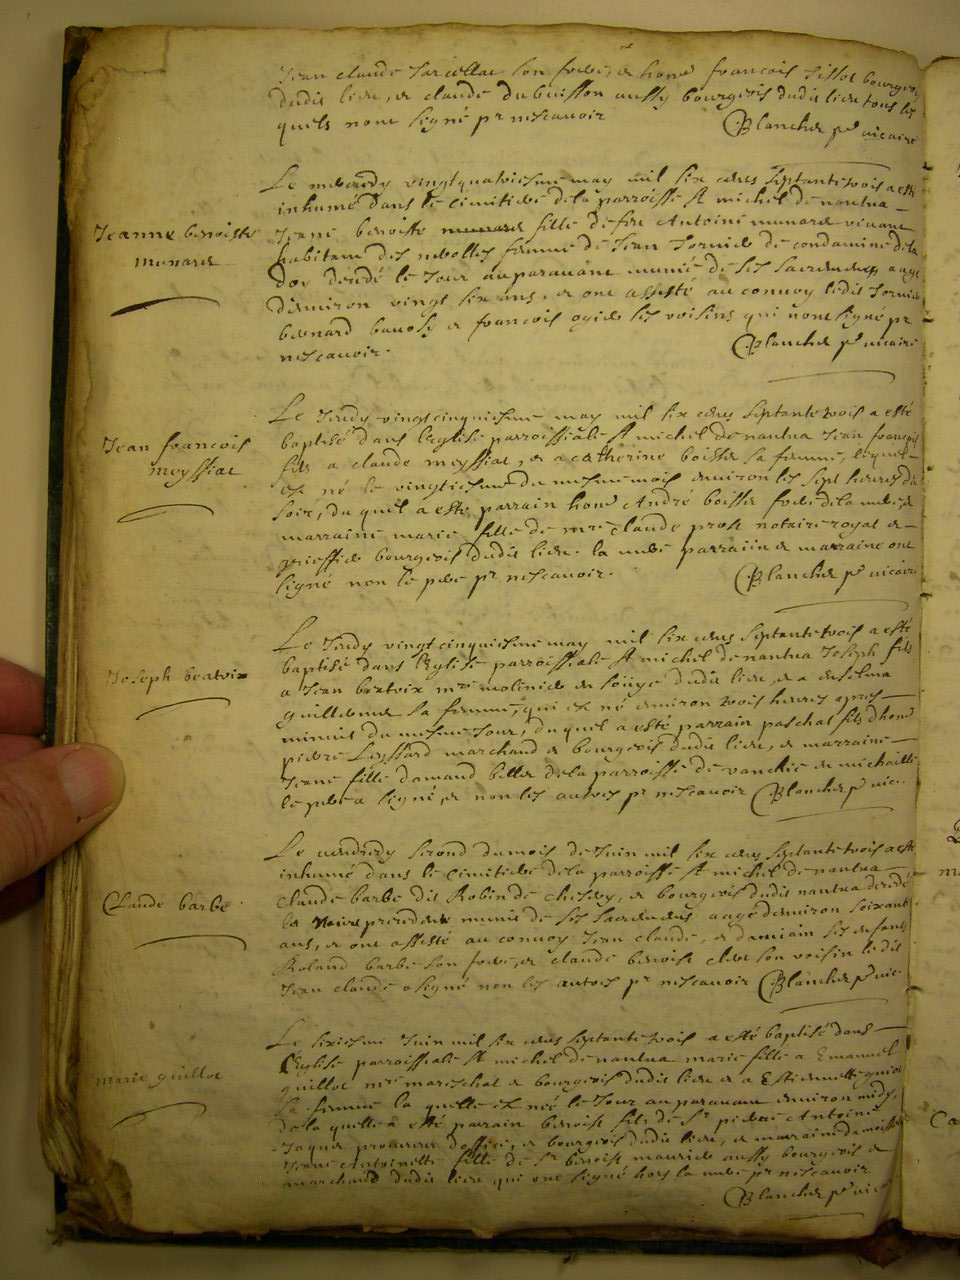 Jean claude son frere, et honne francois Tissot bourgeois
dudit lieu, et claude dubuisson aussy bourgeois dudit lieu tous les
quels nont signé pr nescavoir Blanchet pb vicaire
Le mecredy vingtquatriesme may mil six cens septantetrois a esté
inhumé dans le cimitiere dela parroisse st michel de nantua
Jeanne benoiste
munard
Jeanne benoiste fille de feu Antoine munard vivant
habitant des nerolles femme de Jean Tornier de condamine dela
doy decedé le Jour auparavant munie de ses sacremens aagé
denviron vingt six ans, et ont assisté au convoy ledit Tornier
bernard et francois ogier ses voisins qui nont signé pr
nescavoir. Blanchet pb vicaire
Le Jeudy vingtcinquiesme may mil six cens septantetrois a esté
Jean francois
meyssiat
baptisé dans leglise parroissiale st michel de nantua Jean francois
fils a claude meyssiat, et a catherine boisse sa femme, lequel
est né le vingtiesme du mesme mois environ les sept heures du
soir, duquel a esté parrain honne André boisse frere dela mere, et
marraine marie fille de mre claude prost notaire royal et
greffier bourgeois dudit lieu. la mere parraiin et marraine ont
signé non le pere pr nescavoir. Blanchet pb vicaire
Le Jeudy vingtcinquiesme may mil six cens septantetrois a esté
Joseph bertrix
baptisé dans leglise parroissiale st michel de nantua Joseph fils
a Jean bertrix mre molinier et dudit lieu, et a anselma
sa femme, qui est né environ trois heures apres
minuit du mesme Jour, duquel a esté parrain paschal fils dhonne
pierre Leyssard marchand et bourgeois dudit lieu, et marraine
Jeane fille damand dela parroisse de vanchie en michaille
le pere a signé, et non les autres pr nescavoir Blanchet pb vic.
Le vendredy second dumois de Juin mil six cens septantetrois a esté
inhumé dans le cimitiere dela parroisse st michel de nantua
Claude barbe
claude barbe dit Robin de chesery, et bourgeois dudit nantua decedé
le munis de ses sacremens aagé denviron soixant
ans, et ont assisté au convoy Jean claude, et damiain ses enfans
Roland barbe son frere, et claude benoist son voisin ledit
Jean claude a signé non les autres pr nescavoir Blanchet pb vic
Le sixiesme Juin mil six cens septantetrois a esté baptisé dans
marie guillot
leglise parroissiale st michel de nantua marie fille a Emanuel
guillot mre mareschal et bourgeois dudit lieu et a
sa femme la quelle est née le Jour auparavant environ midy,
de la quelle a esté parrain benoist fils de sr pierre Antoine
Jaquet procureur doffice, et bourgeois dudit lieu, et marraine
Jeane Antoinette fille de sr benoist maurier aussy bourgeois et
marchand dudit lieu qui ont signé hors la mere pr nescavoir
Blanchet pb vic